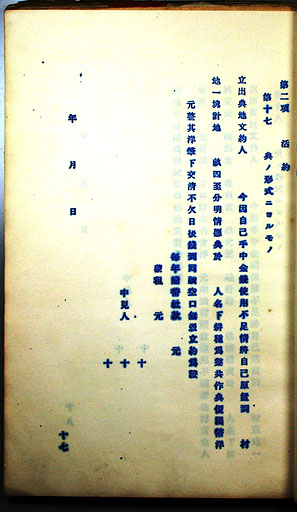 第二項 活約
第十七 典ノ形式ニヨルモノ
立出典地文約人 今因自己手中金錢使用不足情將自己原置到 村
地一塊計地 畝四至分明情愿典於 人名下耕種爲業共作典價國幣洋
元整其洋筆下交清不欠日後錢到回贖空口無憑立約爲證
每年隨帶社款 元
蒙租 元
中見人 十
十
年 月 日
十七